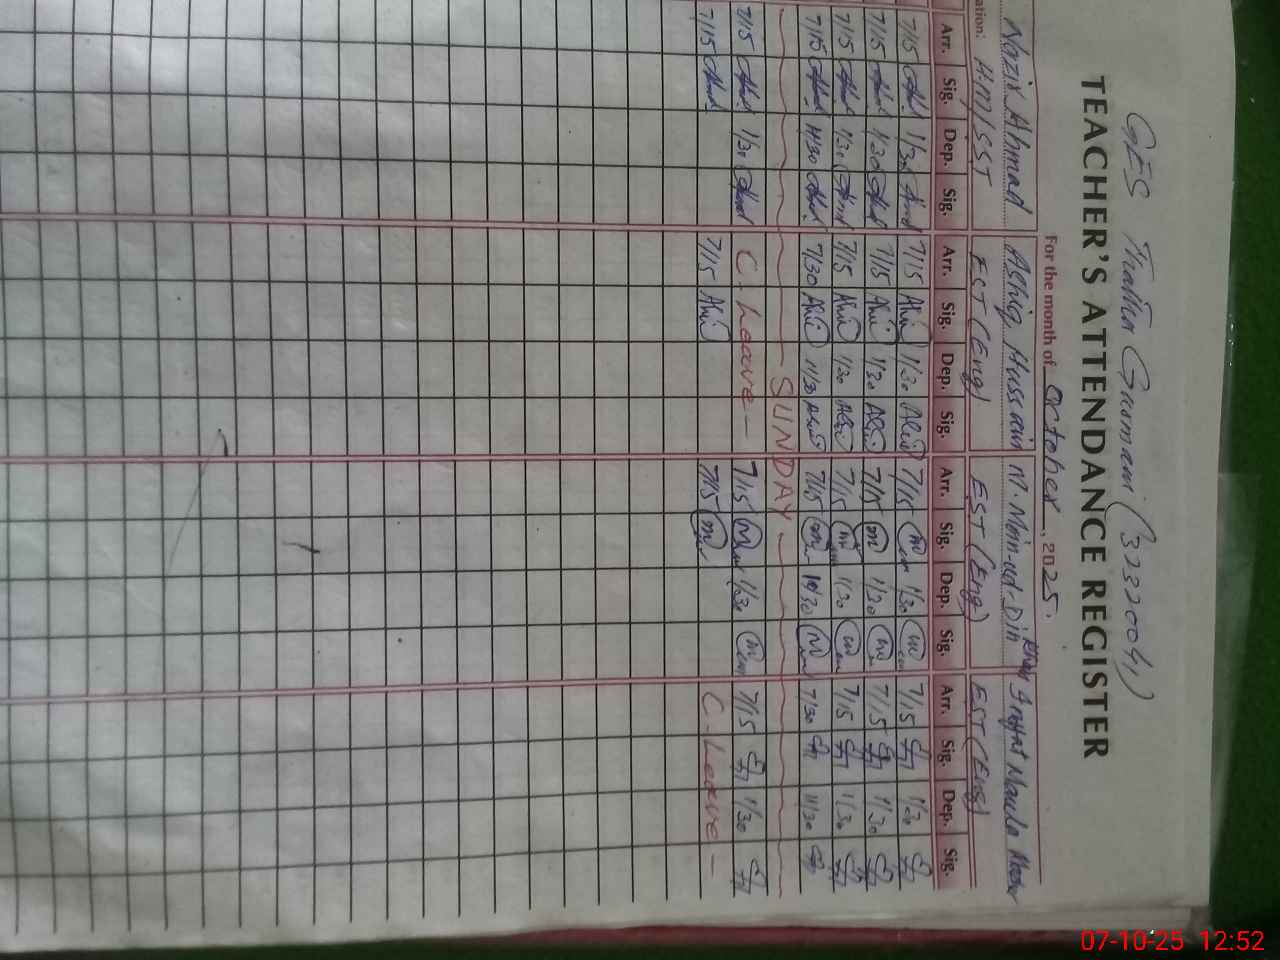 GES (32320041)
TEACHER'S ATTENDANCE REGISTER
For the month of October, 2025.
Nazir Ahmad Ashiq Hussain M. Moin-ud-Din Khan
HM/SST EST (Eng) EST (Eng) EST (Eng)
Arr. Sig. Dep. Sig. Arr. Sig. Dep. Sig. Arr. Sig. Dep. Sig. Arr. Sig. Dep. Sig.
7/15 1/30 7/15 1/30 7/15 1/30 7/15 1/30
7/15 1/30 7/15 1/30 7/15 1/30 7/15 1/30
7/15 1/30 7/15 1/30 7/15 1/30 7/15 1/30
7/15 11/30 7/30 11/30 7/15 7/30 11/30
SUNDAY
7/15 1/30 C. Leave 7/15 1/30 7/15 1/30
7/15 7/15 7/15 C. Leave
07-10-25 12:52